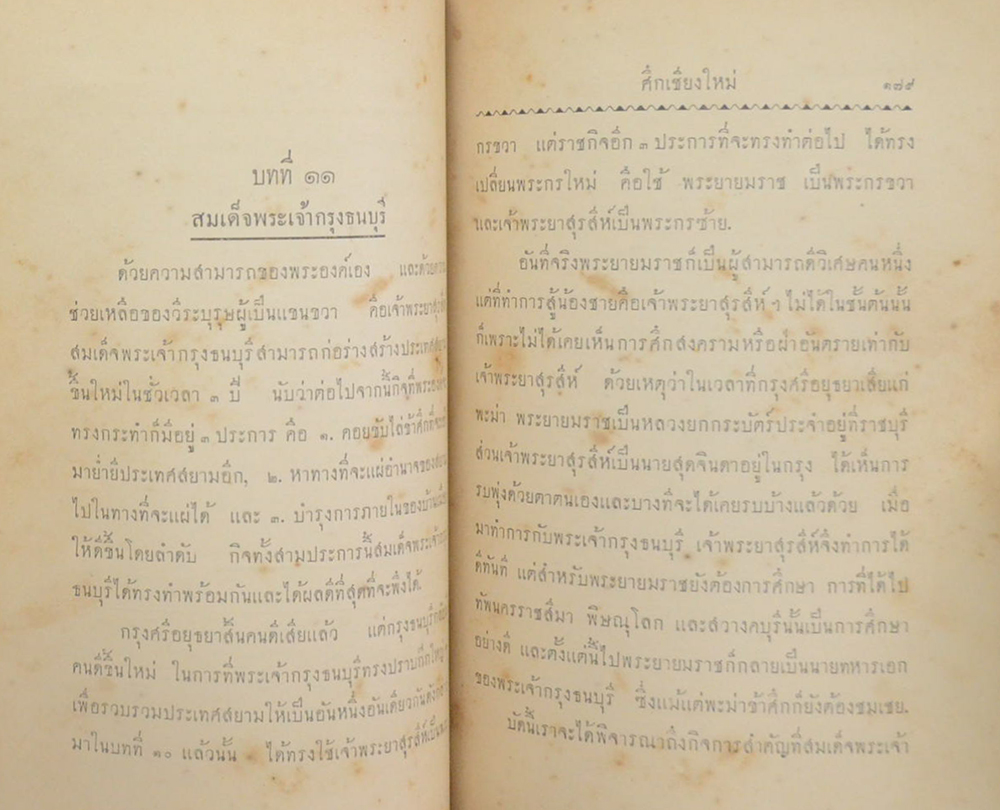 บทที่ ๑๑
สมเด็จพระเจ้ากรุงธนบุรี
ด้วยความสามารถของพระองค์เอง และด้วยความ
ช่วยเหลือของวีระบุรุษผู้เป็นแขนขวา คือเจ้าพระยา
สมเด็จพระเจ้ากรุงธนบุรีสามารถก่อร่างสร้างประเทศ
ขึ้นใหม่ในชั่วเวลา ๓ ปี นับว่าต่อไปจากนี้กิจที่
ทรงกระทำก็มีอยู่ ๓ ประการ คือ ๑. คอยขับไล่ข้าศึก
มาย่ำยีประเทศสยามอีก, ๒. หาทางที่จะแผ่อำนาจของ
ไปในทางที่จะแผ่ได้ และ ๓. บำรุงการภายในของ
ให้ดีขึ้นโดยลำดับ กิจทั้งสามประการนี้สมเด็จพระเจ้า
ธนบุรีได้ทรงทำพร้อมกันและได้ผลดีที่สุดที่จะพึงได้.
กรุงศรีอยุธยาสิ้นคนดีเสียแล้ว แต่กรุงธนบุรี
คนดีขึ้นใหม่ ในการที่พระเจ้ากรุงธนบุรีทรงปราบ
เพื่อรวบรวมประเทศสยามให้เป็นอันหนึ่งอันเดียวกัน
มาในบทที่ ๑๐ แล้วนั้น ได้ทรงใช้เจ้าพระยาสุรสีห์เป็น
ศึกเชียงใหม่ ๑๘๙
กรขวา แต่ราชกิจอีก ๓ ประการที่จะทรงทำต่อไป ได้ทรง
เปลี่ยนพระกรใหม่ คือใช้ พระยายมราช เป็นพระกรขวา
และเจ้าพระยาสุรสีห์เป็นพระกรซ้าย.
อันที่จริงพระยายมราชก็เป็นผู้สามารถดีวิเศษคนหนึ่ง
แต่ที่ทำการสู้น้องชายคือเจ้าพระยาสุรสีห์ ฯ ไม่ได้ในชั้นต้นนั้น
ก็เพราะไม่ได้เคยเห็นการศึกสงครามหรือฝ่าอันตรายเท่ากับ
เจ้าพระยาสุรสีห์ ด้วยเหตุว่าในเวลาที่กรุงศรีอยุธยาเสียแก่
พะม่า พระยายมราชเป็นหลวงยกกระบัตร์ประจำอยู่ที่ราชบุรี
ส่วนเจ้าพระยาสุรสีห์เป็นนายสุดจินดาอยู่ในกรุง ได้เห็นการ
รบพุ่งด้วยตาตนเองและบางทีจะได้เคยรบบ้างแล้วด้วย เมื่อ
มาทำการกับพระเจ้ากรุงธนบุรี เจ้าพระยาสุรสีห์จึงทำการได้
ดีทันที แต่สำหรับพระยายมราชยังต้องการศึกษา การที่ได้ไป
ทัพนครราชสีมา พิษณุโลก และสวางคบุรีนั้นเป็นการศึกษา
อย่างดี และตั้งแต่นี้ไปพระยายมราชก็กลายเป็นนายทหารเอก
ของพระเจ้ากรุงธนบุรี ซึ่งแม้แต่พะม่าข้าศึกก็ยังต้องชมเชย.
บัดนี้เราจะได้พิจารณาถึงกิจการสำคัญที่สมเด็จพระเจ้า